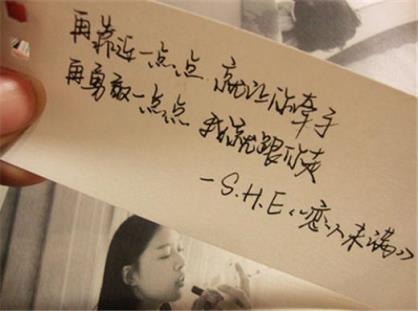 再靠近一点点 就让你牵手
再勇敢一点点 我就跟你走
—S.H.E《恋人未满》